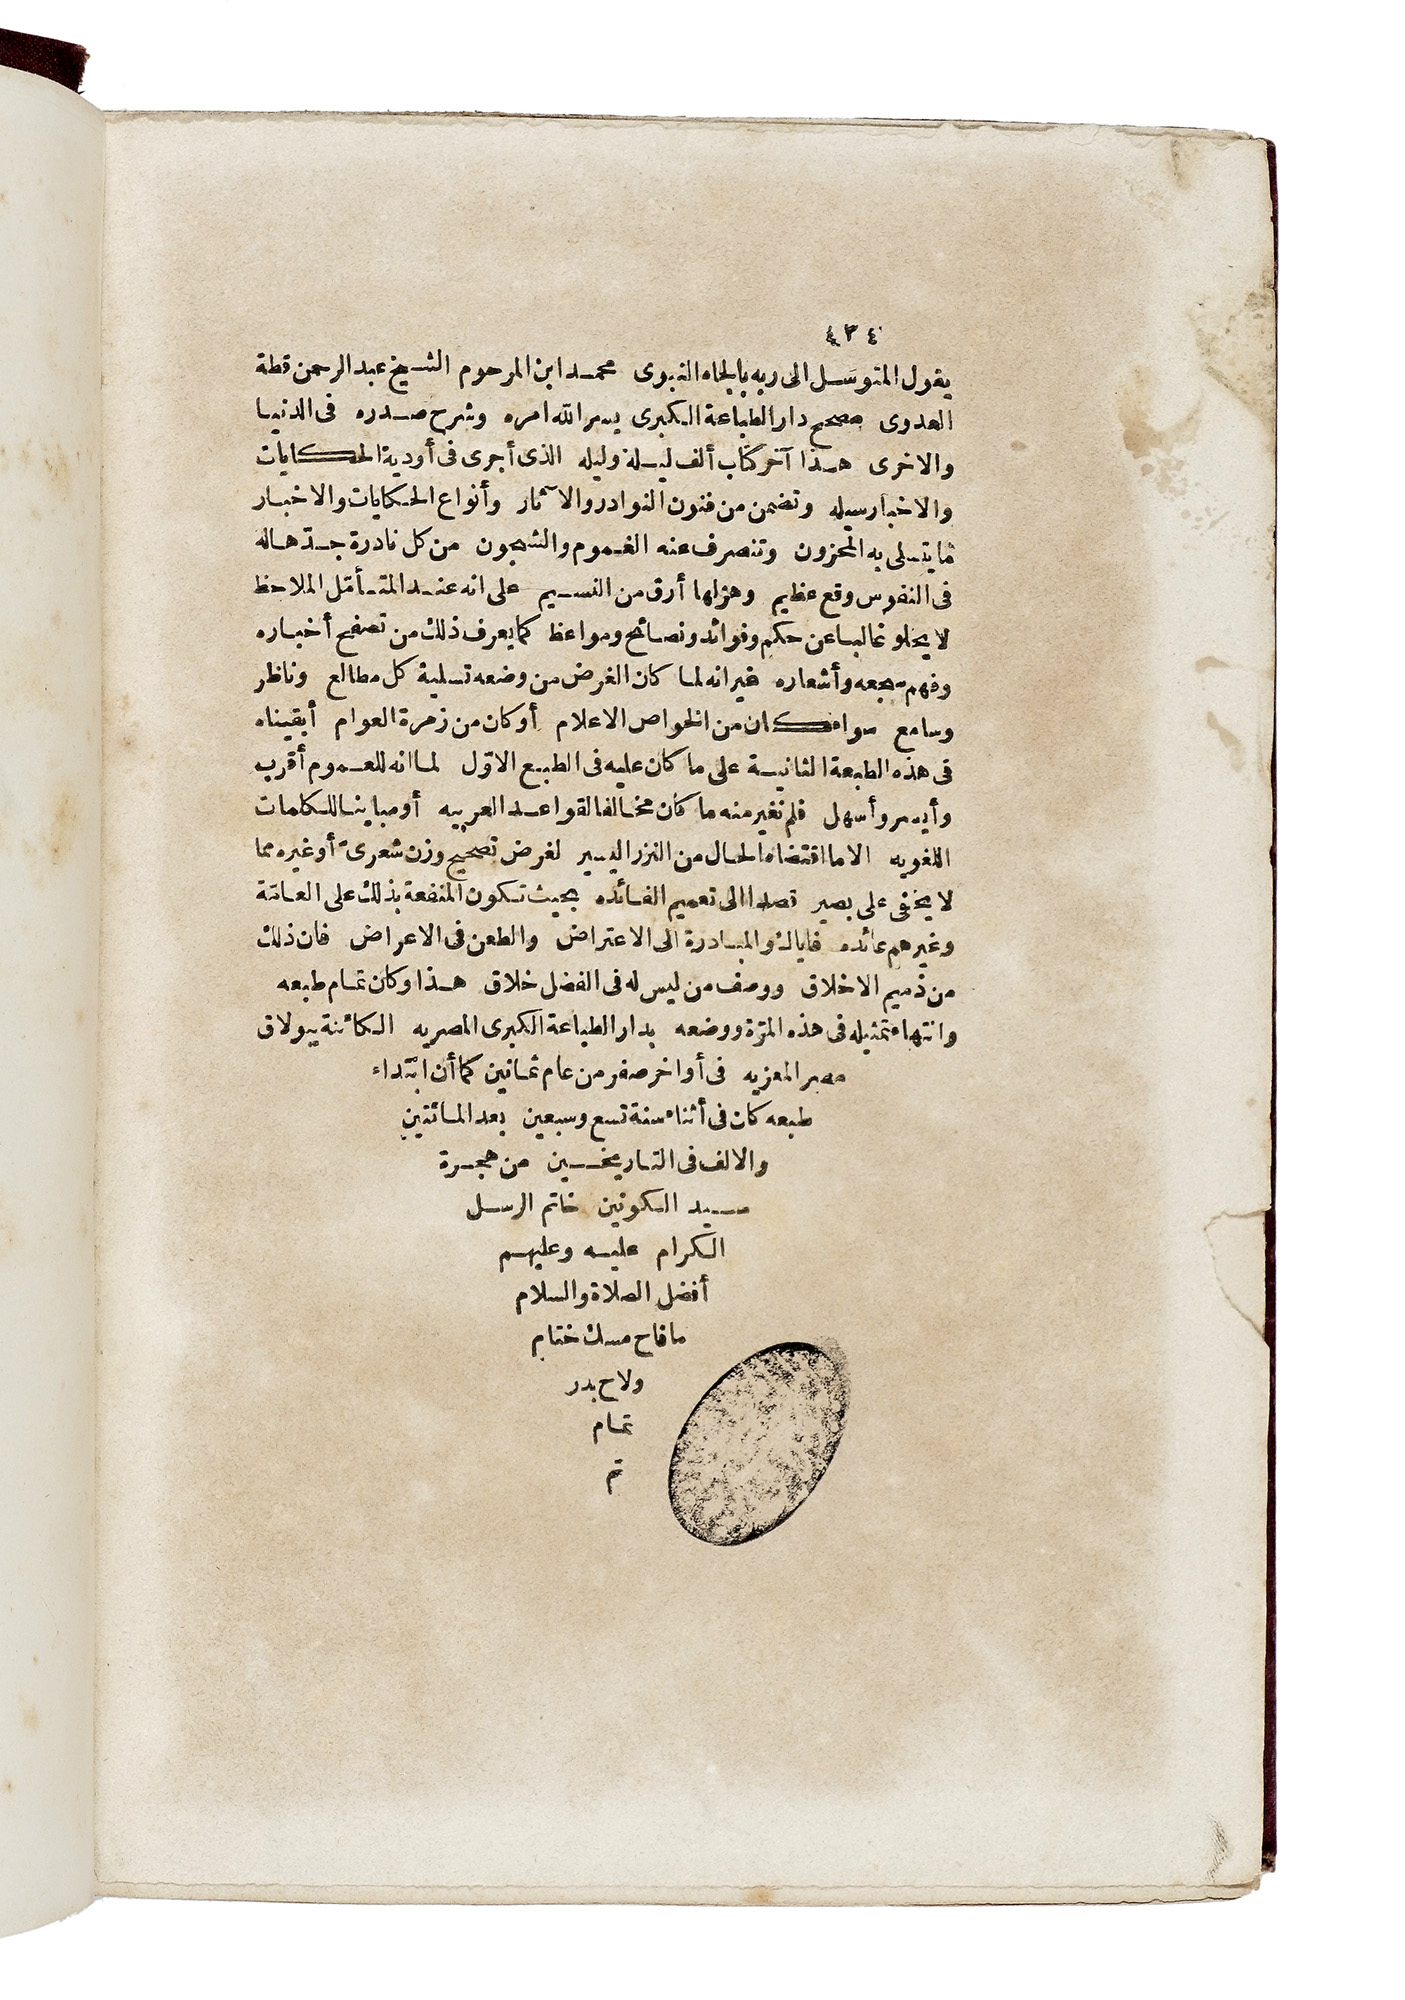 ٤٣٤
يقول المتوسل الى ربه بالجاه النبوى محمد ابن المرحوم الشيخ عبد الرحمن قطة
العدوى مصحح دار الطباعة الكبرى يسر الله امره وشرح صدره فى الدنيا
والاخرى هذا آخر كتاب ألف ليلة وليله الذى أجرى فى أودية الحكايات
والاخبار سيله وتضمن من فنون النوادر والآثار وأنواع الحكايات والاخبار
مايتسلى به المحزون وتنصرف عنه الغموم والشجون من كل نادرة جدّها له
فى النفوس وقع عظيم وهزلها أرق من النسيم على انه عند المتأمّل الملاحظ
لا يخلو غالبا عن حكم وفوائد ونصائح ومواعظ كما يعرف ذلك من تصفح أخباره
وفهم سجعه وأشعاره غير انه لما كان الغرض من وضعه تسلية كل مطالع وناظر
وسامع سواء كان من الخواص الاعلام أو كان من زمرة العوام أبقيناه
فى هذه الطبعة الثانية على ما كان عليه فى الطبع الاوّل لما انه للعموم أقرب
وأيسر وأسهل فلم نغير منه ما كان مخالفا لقواعد العربيه أو مباينا للكلمات
اللغويه الا ما اقتضاه الحال من النزر اليسير لغرض تصحيح وزن شعرىّ أو غيره مما
لا يخفى على بصير قصدا الى تعميم الفائده بحيث تكون المنفعة بذلك على العامّة
وغيرهم عائده فاياك والمبادرة الى الاعتراض والطعن فى الاعراض فان ذلك
من ذميم الاخلاق ووصف من ليس له فى الفضل خلاق هذا وكان تمام طبعه
وانتهاء تمثيله فى هذه المرّة ووضعه بدار الطباعة الكبرى المصريه الكائنة ببولاق
مصر المعزيه فى أواخر صفر من عام ثمانين كما أن ابتداء
طبعه كان فى أثناء سنة تسع وسبعين بعد المائتين
والالف فى التاريخين من هجرة
سيد الكونين خاتم الرسل
الكرام عليه وعليهم
أفضل الصلاة والسلام
ما فاح مسك ختام
ولاح بدر
تمام
تم